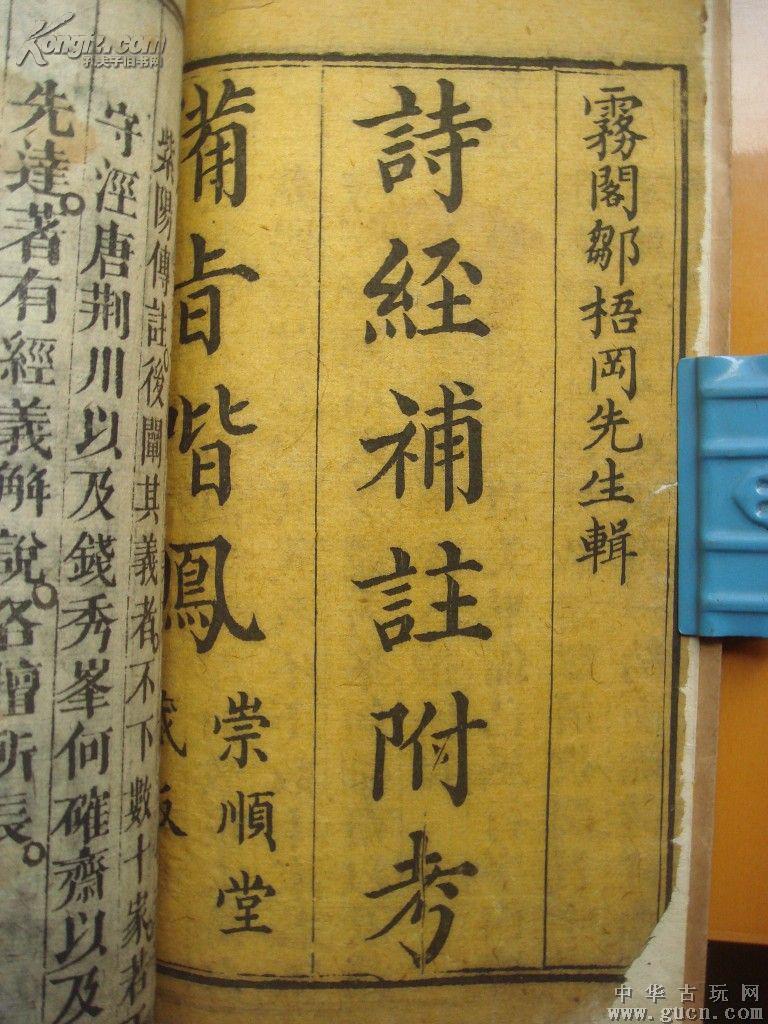 霧閣鄒梧岡先生輯
詩經補註附考
備旨喈鳳
崇順堂
藏板
紫陽傳註後闡其義者。不下數十家。若
守涇唐荆川以及錢秀峯何確齋以及
先達。著有經義解說。各擅所長。
Kongfz.com
孔夫子旧书网
中华古玩网
www.gucn.com